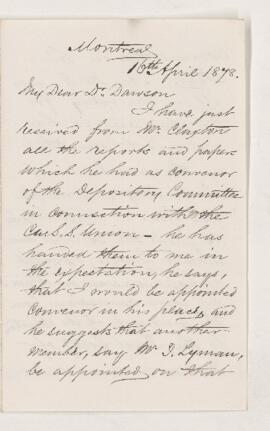 Montreal
16th April 1878.
My Dear Dr. Dawson
I have just
received from Mr. Clayton
all the reports and paper
which he had as convenor
of the Depository Committee
in connection with the
Can. S. S. Union – he has
handed them to me in
the expectation, he says,
that I would be appointed
Convenor in his place, and
he suggests that another
member, say Mr. T. Lyman,
be appointed on that